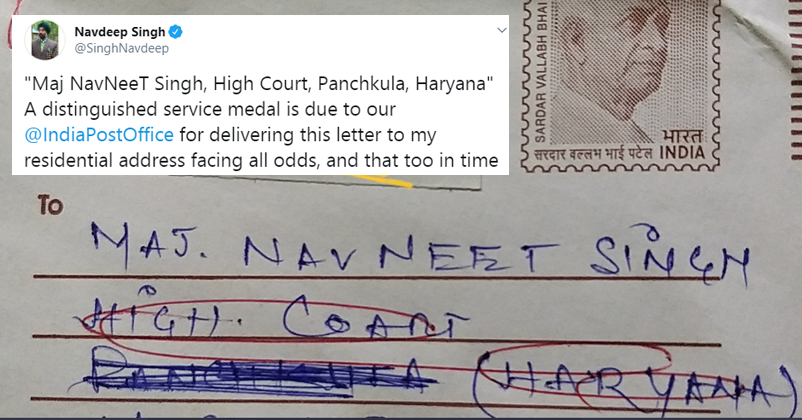 Navdeep Singh
@SinghNavdeep
"Maj NavNeeT Singh, High Court, Panchkula, Haryana"
A distinguished service medal is due to our
@IndiaPostOffice for delivering this letter to my
residential address facing all odds, and that too in time
SARDAR VALLABH BHAI
भारत
सरदार वल्लभ भाई पटेल INDIA
To
MAJ. NAVNEET SINGH
HIGH. COART
PANCHKULA (HARYANA)